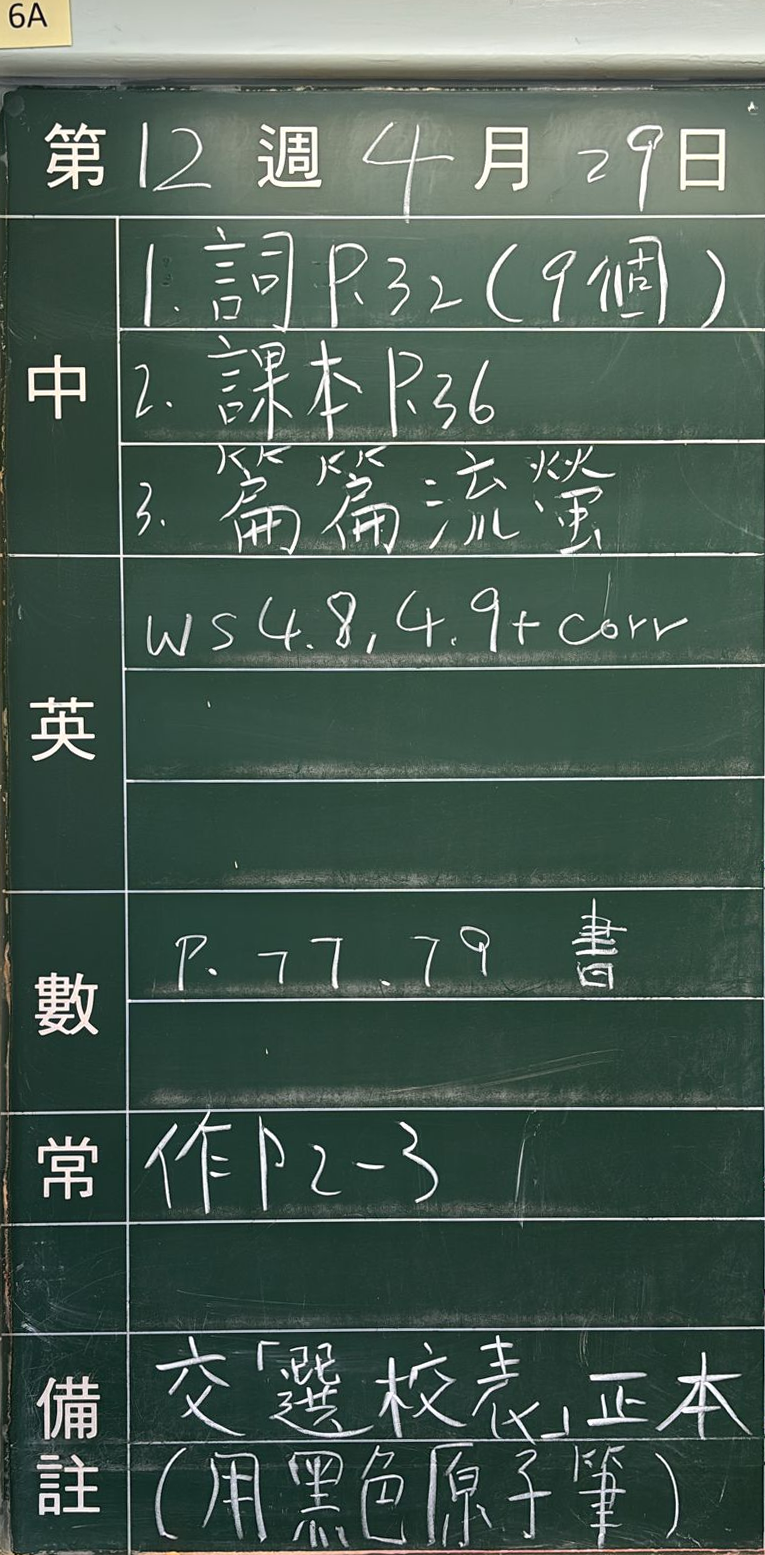 6A
第12週4月29日
中
1. 詞 P.32 (9個)
2. 課本 P.36
3. 篇篇流螢
英
WS 4.8, 4.9 + corr
數
P. 77. 79 書
常
作 P2-3
備註
交「選校表」正本
(用黑色原子筆)